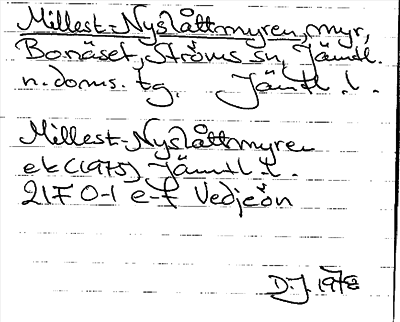 Millest-Nyslåttmyren, myr,
Bonäset, Ströms sn, Jämtl.
n. doms. tg. Jämtl. l.
Millest-Nyslåttmyren
ek (1975) Jämtl. l.
21F 0-1 e-f Vedjeön
D.J. 1978